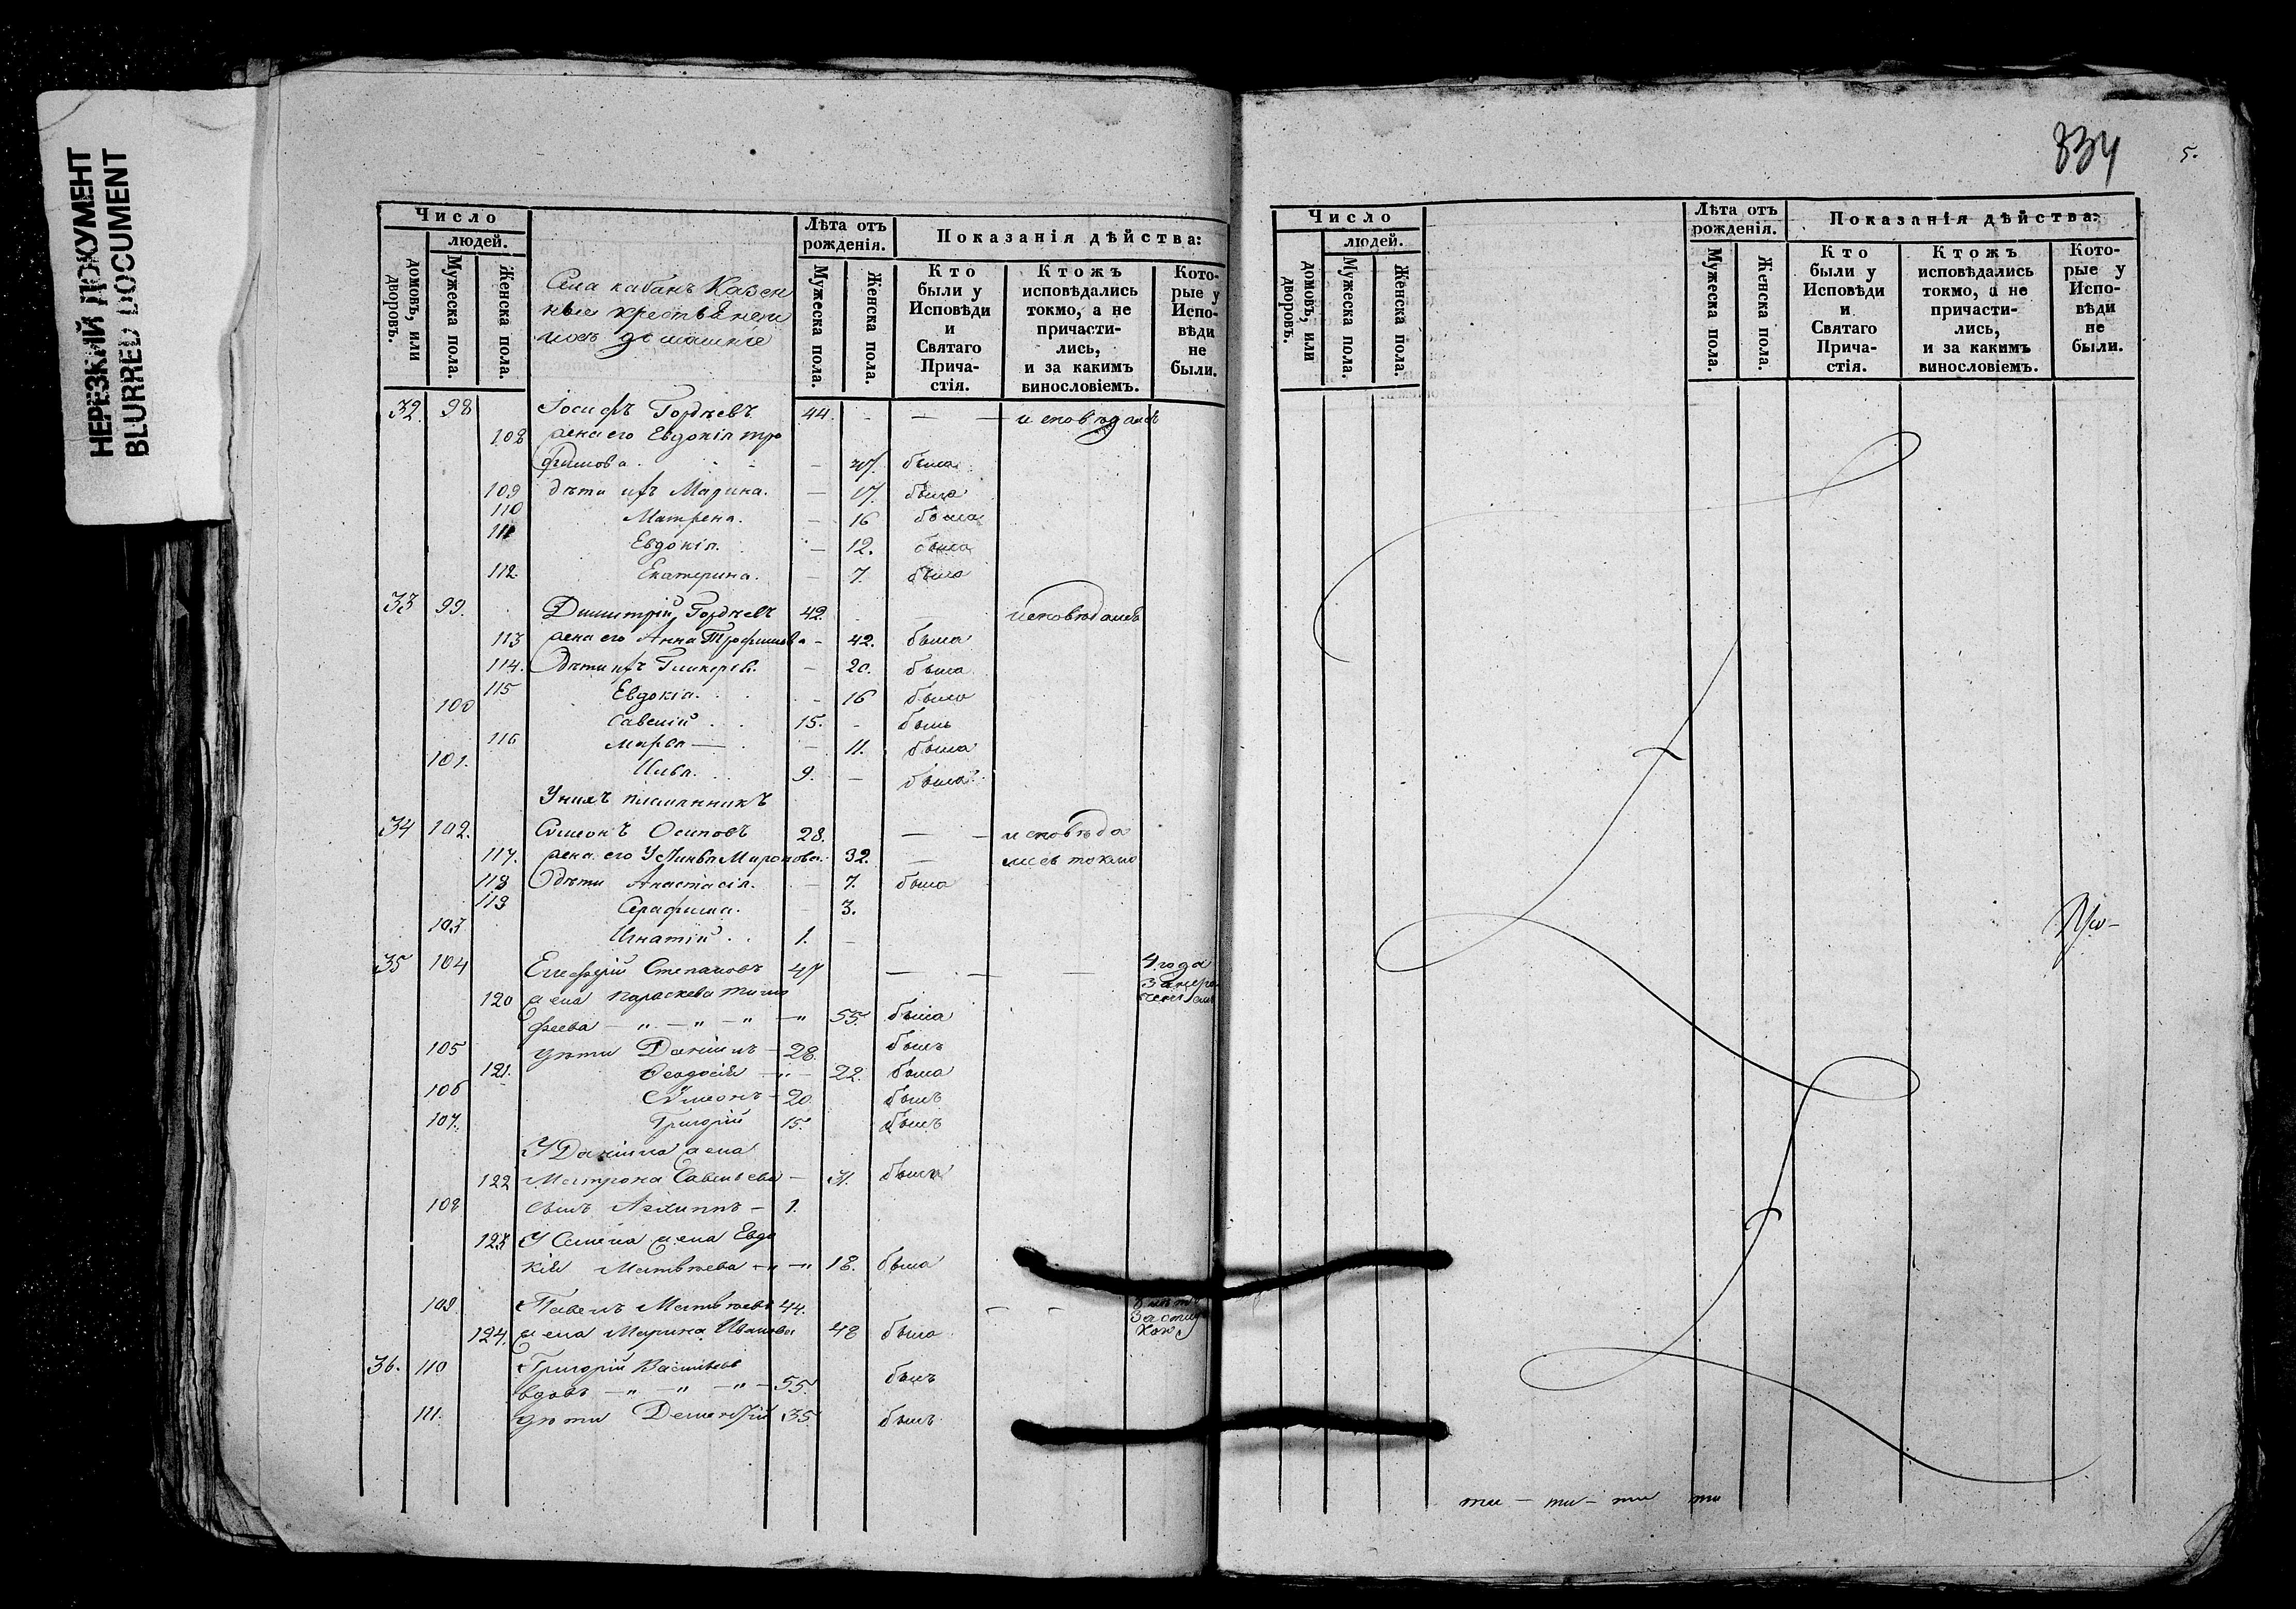 НЕРЕЗКИЙ ДОКУМЕНТ
BLURRED DOCUMENT
834
5.
Число
людей.
домовъ, или дворовъ.
Мужеска пола.
Женска пола.
Села кабанъ Казен
ные крестьяне и
ихъ домашніе
Лѣта отъ рожденія.
Мужеска пола.
Женска пола.
Показанія дѣйства:
Кто были у Исповѣди и Святаго Причастія.
Ктожъ исповѣдались токмо, а не причастились, и за какимъ винословіемъ.
Которые у Исповѣди не были.
32 98 Іосифъ Гордѣевъ 44. — — исповѣдался
108 жена его Евдокія тро
фимова. — 47. была
109 дѣти ихъ Марина. — 17. была
110 Матрена. — 16 была
111 Евдокія. — 12. была
112. Екатерина. — 7. была
33 99. Димитрій Гордѣевъ 42. — исповѣдался
113 жена его Анна Трофимова - 42. была
114. Дѣти ихъ Гликерія. — 20. была
115 Евдокіа. - 16 была
100 Савелій 15. - былъ
116 Марѳа — — 11. была
101. Илья. 9. — была
У нихъ племянникъ
34 102. Сѵмеонъ Осиповъ 28. — — исповѣда
117. жена его Устинья Миронова. 32. — лись токмо
118 Дѣти Анастасія. — 7. была
119 Серафима. 3.
103 Игнатій 1. —
35 104 Елефѳрій Степановъ 47 — — — 4 года
120 жена Параскева Тимо
фѣева — " — " — " — " 55. была
105 дѣти Даніилъ — 28. былъ
121. Ѳеодосія — " — 22. была
106 Сѵмеонъ - 20. былъ
107. Григорій 15. былъ
У Даніила жена
122 Матрона Савельева — 31. была
108 сынъ Архиппъ — 1.
123 У Семена жена Евдо
кія Матвѣева — " — " 18. была
109 Павелъ Матвѣевъ 44. — —
124. жена Марина Иванова 48 была
36. 110 Григорій Васильевъ
вдовъ — " — " — " — 55. былъ
111. дѣти Дементій 35. былъ
Число
людей.
домовъ, или дворовъ.
Мужеска пола.
Женска пола.
Лѣта отъ рожденія.
Мужеска пола.
Женска пола.
Показанія дѣйства:
Кто были у Исповѣди и Святаго Причастія.
Ктожъ исповѣдались токмо, а не причастились, и за какимъ винословіемъ.
Которые у Исповѣди не были.